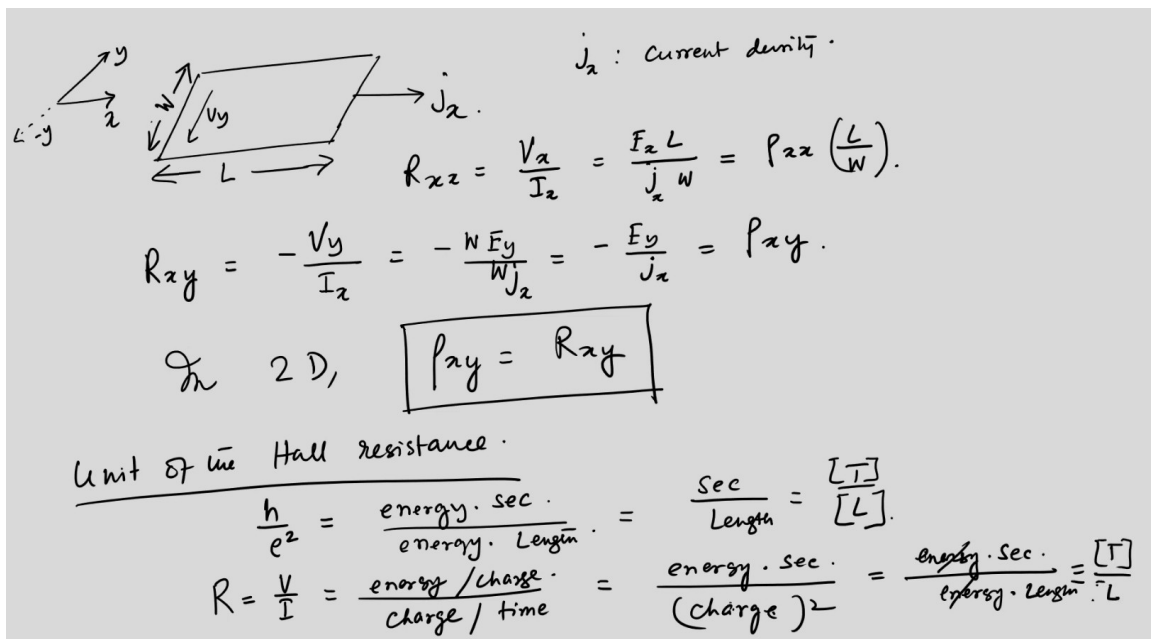 y
x
-y
W
V_y
L
j_x.
j_x : Current density.
R_xx = V_x / I_x = E_x L / j_x W = ρ_xx (L/W).
R_xy = - V_y / I_x = - W E_y / W j_x = - E_y / j_x = ρ_xy.
In 2D, ρ_xy = R_xy
Unit of the Hall resistance.
h / e² = energy. sec. / energy. Length. = Sec / Length = [T] / [L].
R = V / I = energy / charge. / charge / time = energy. sec. / (charge)² = energy. sec. / energy. Length = [T] / L